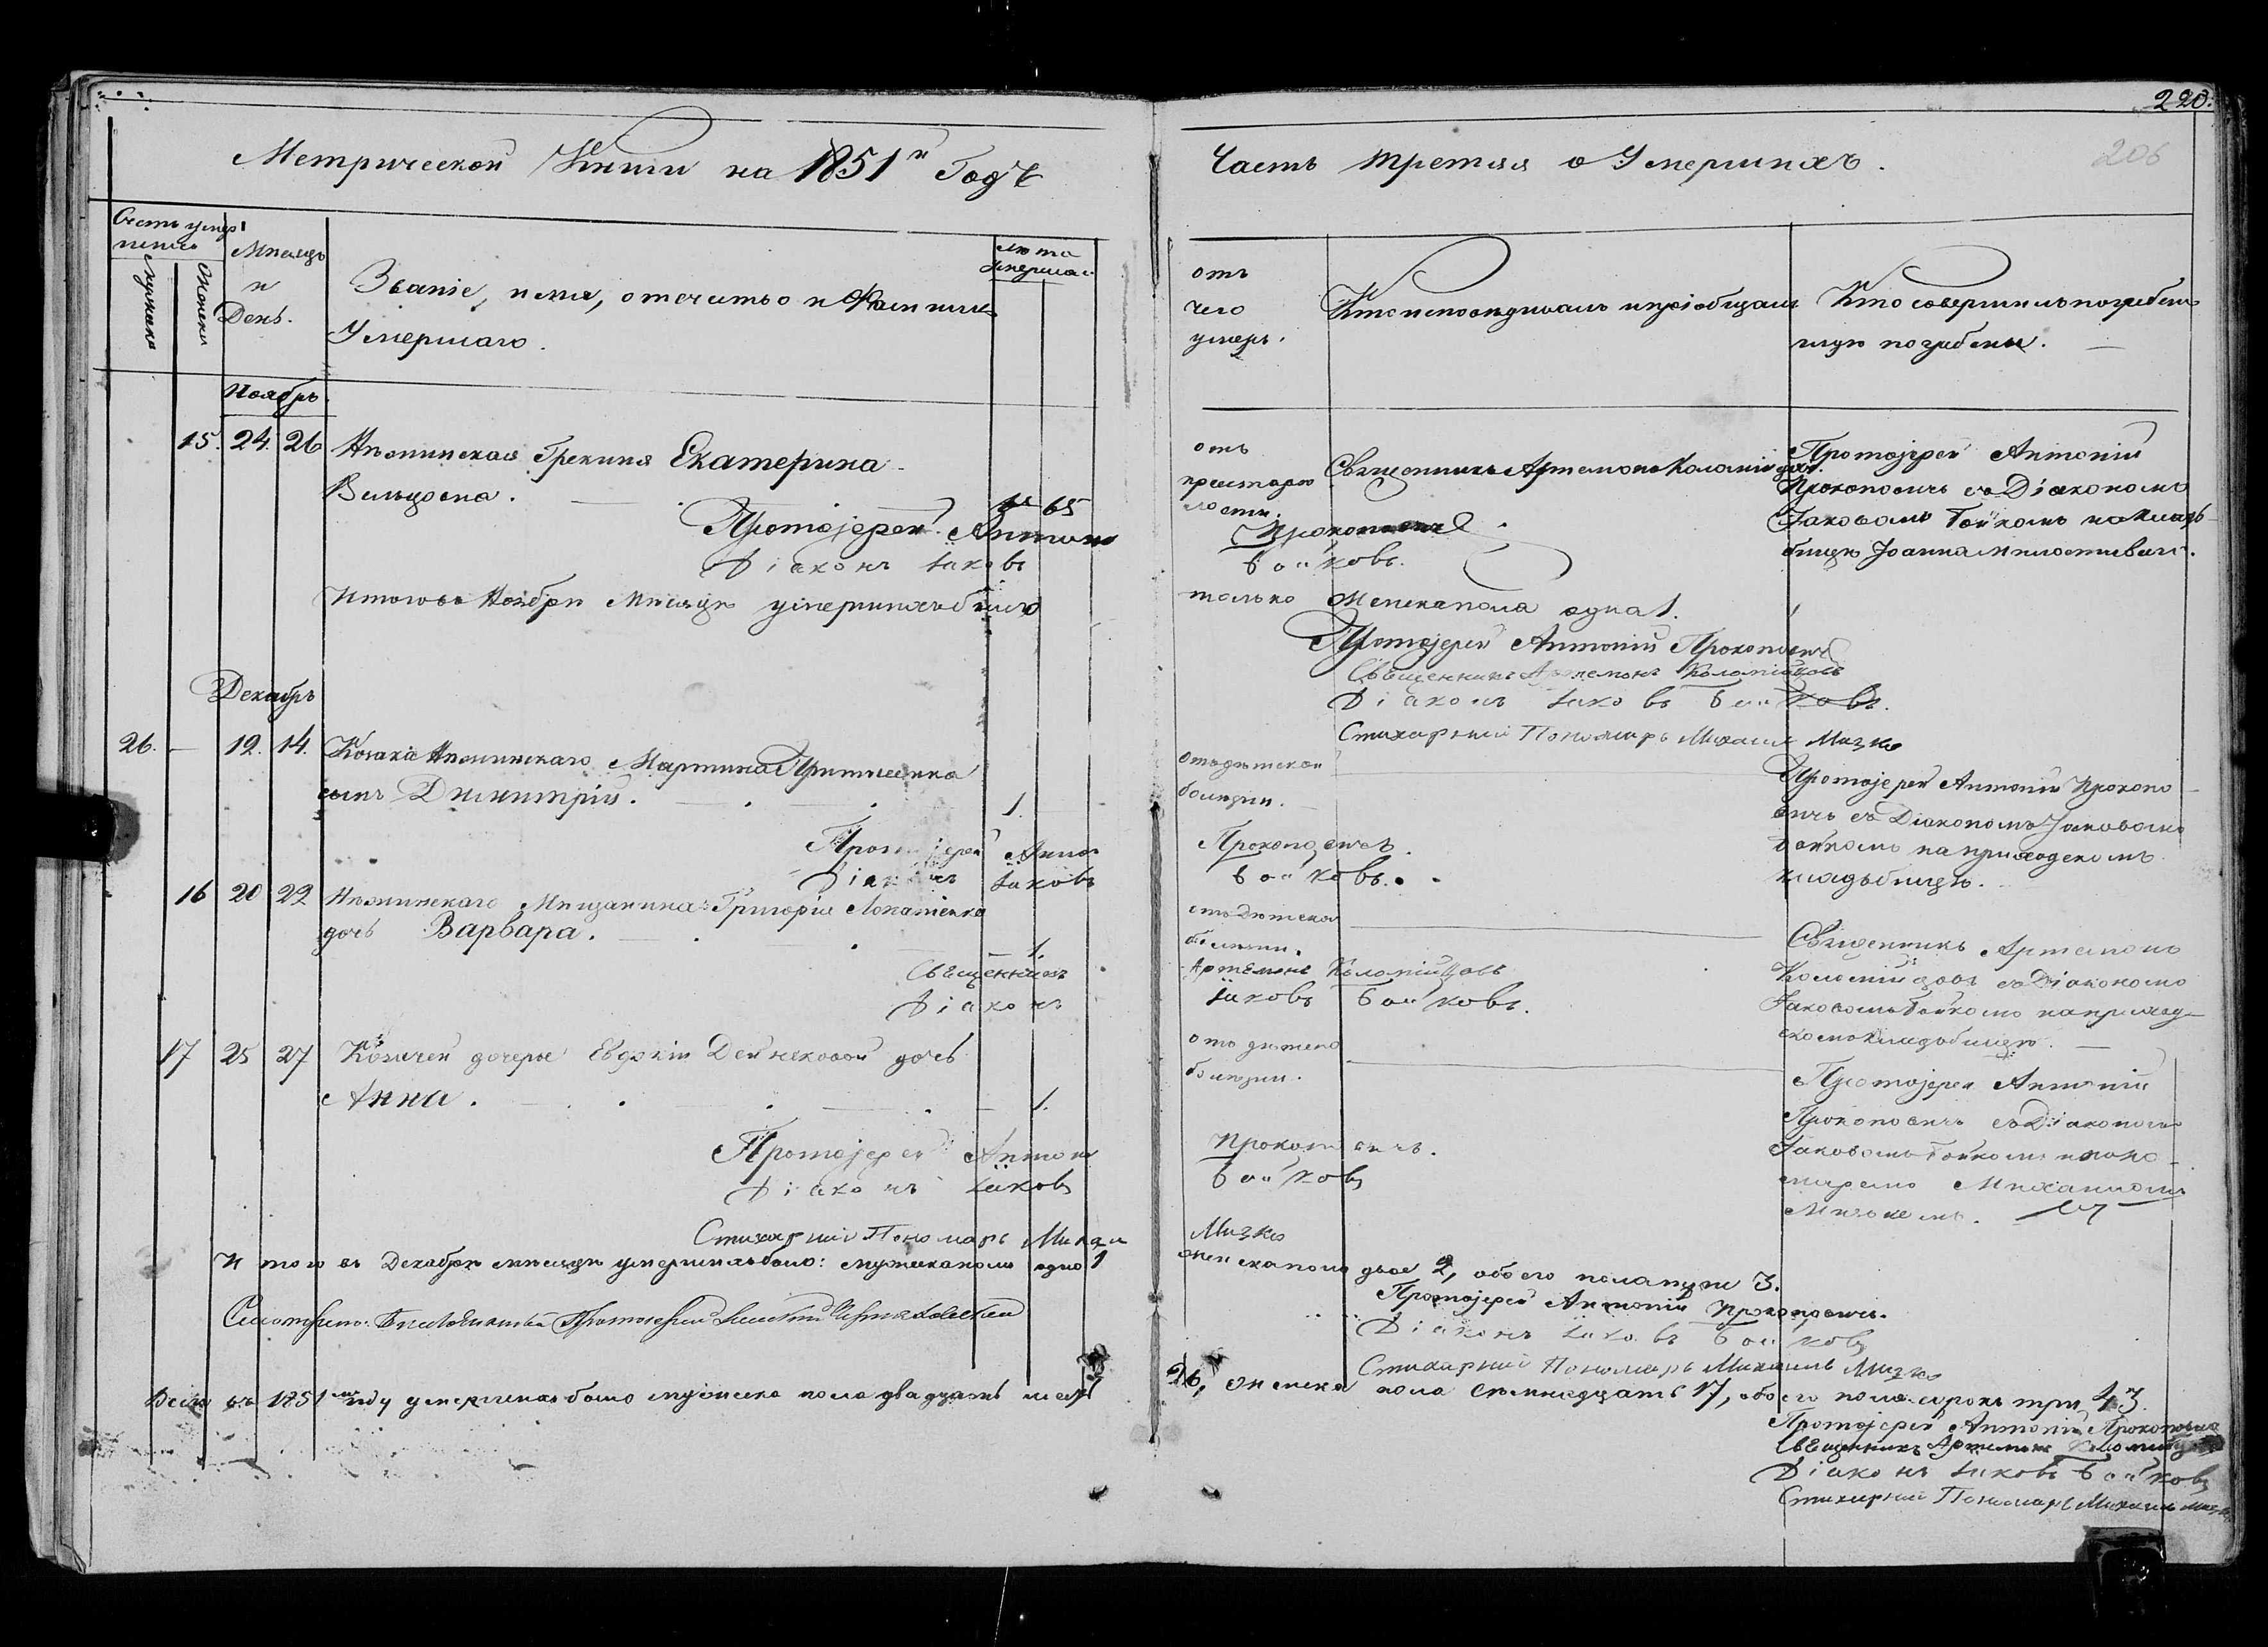 220.
206
Метрической Книги на 1851й Годъ
Часть третяя о Умершихъ.
Счетъ умер
шихъ
Мужеска
Женска
Мѣсяцъ
и
День.
Званіе, имя, отечество и Фамилія
Умершаго.
лѣта
умершаго
отъ
чего
умеръ.
Кто исповѣдывалъ и пріобщалъ
Кто совершилъ погребеніе
и гдѣ погребены.
Ноябрь
15. 24. 26 Нѣжинская Грекиня Екатерина
65
отъ
престарѣ
лости.
Священникъ Артемонъ Коломійцовъ.
Протоіерей Антоній
Прокоповичъ съ Діакономъ
Іаковомъ Бойкомъ на клад
бищѣ Іоанна милостиваго.
Протоіерей Антоній Прокоповичъ
Діаконъ Іаковъ Бойковъ.
Итого въ Ноябрѣ Мѣсяцѣ умершихъ было только женска пола одна 1.
Протоіерей Антоній Прокоповичъ
Священникъ Артемонъ Коломійцовъ
Діаконъ Іаковъ Бойковъ.
Стихарный Пономарь Михаилъ Мизко
Декабрь
26. — 12. 14. Козака Нѣжинскаго Мартина
сынъ Димитрій. 1.
отъ дѣтской
болѣзни.
Протоіерей Антоній Прокопо
вичъ съ Діакономъ Іаковомъ
Бойкомъ на приходскомъ
кладбищѣ.
Протоіерей Антоній Прокоповичъ.
Діаконъ Іаковъ Бойковъ.
16 20 22 Нѣжинскаго Мѣщанина Григорія Лопатенка
дочь Варвара. 1.
отъ дѣтской
болѣзни.
Священникъ Артемонъ
Коломійцовъ съ Діакономъ
Іаковомъ Бойкомъ на приход
скомъ кладбищѣ.
Священникъ Артемонъ Коломійцовъ
Діаконъ Іаковъ Бойковъ.
17 25 27 Козачей дочери Евдокіи Дейнековой дочь
Анна. 1.
отъ дѣтской
болѣзни.
Протоіерей Антоній
Прокоповичъ съ Діакономъ
Іаковомъ Бойкомъ и поно
маремъ Михаиломъ
Мизкомъ.
Протоіерей Антоній Прокоповичъ.
Діаконъ Іаковъ Бойковъ
Стихарный Пономарь Михаилъ Мизко
Итого въ Декабрѣ мѣсяцѣ умершихъ было: мужеска пола одно 1 женска пола двое 2, обоего пола три 3.
Протоіерей Антоній Прокоповичъ.
Діаконъ Іаковъ Бойковъ
Стихарный Пономарь Михаилъ Мизко
Смотрѣно: Благочинный Протоіерей
Всего въ 1851мъ году умершихъ было мужеска пола двадцать шесть 26, женска пола семнадцать 17, обоего пола сорокъ три 43.
Протоіерей Антоній Прокоповичъ
Священникъ Артемонъ Коломійцовъ
Діаконъ Іаковъ Бойковъ
Стихарный Пономарь Михаилъ Мизко